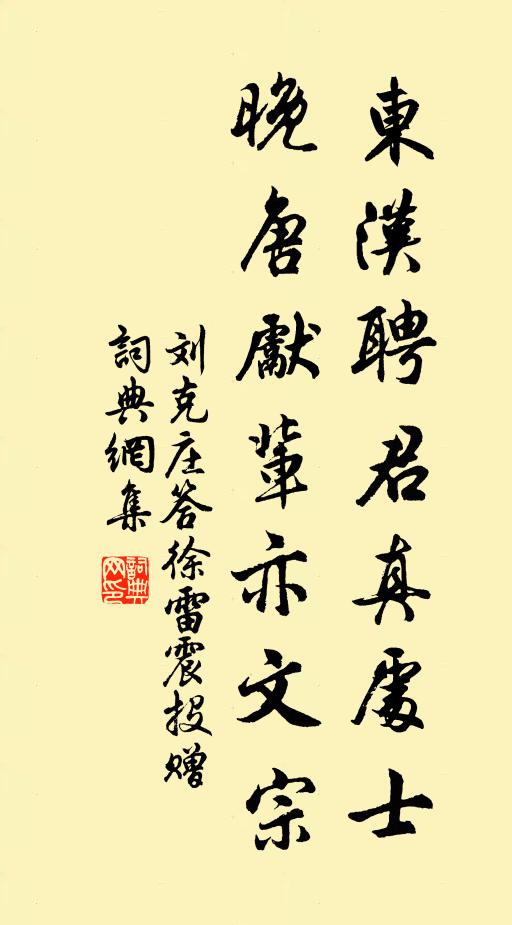 東漢聘君真處士
晚唐獻輩亦文宗
刘克庄答徐雷震投赠
詞典網集
詞典网印